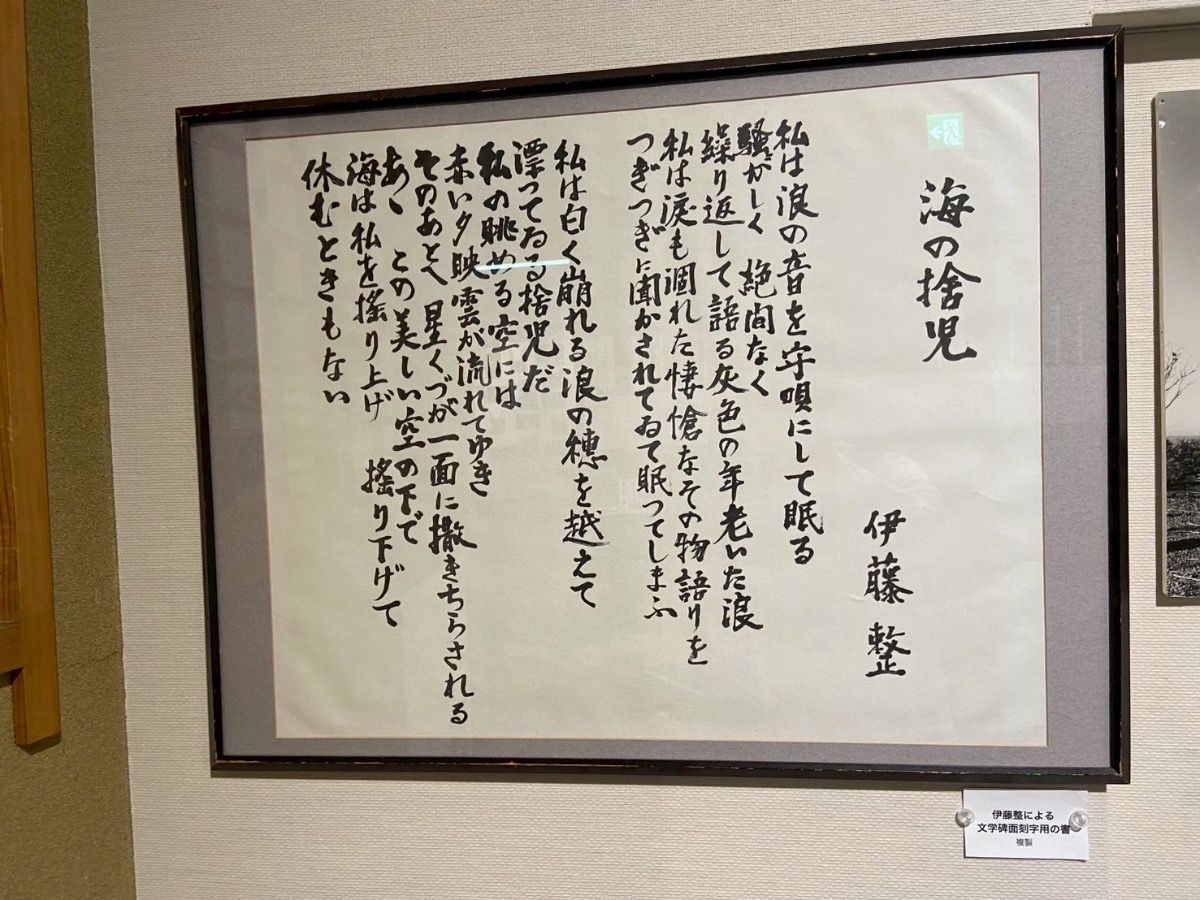 海の捨児
伊藤整
私は浪の音を守唄にして眠る
騒がしく 絶間なく
繰り返して語る灰色の年老いた浪
私は涙も涸れた悽愴なその物語りを
つぎつぎに聞かされてゐて眠つてしまふ
私は白く崩れる浪の穂を越えて
漂つてゐる捨児だ
私の眺める空には
赤い夕映雲が流れてゆき
そのあとへ星くづが一面に撒きちらされる
あゝ この美しい空の下で
海は私を搖り上げ 搖り下げて
休むときもない
伊藤整による
文学碑面刻字用の書
複製